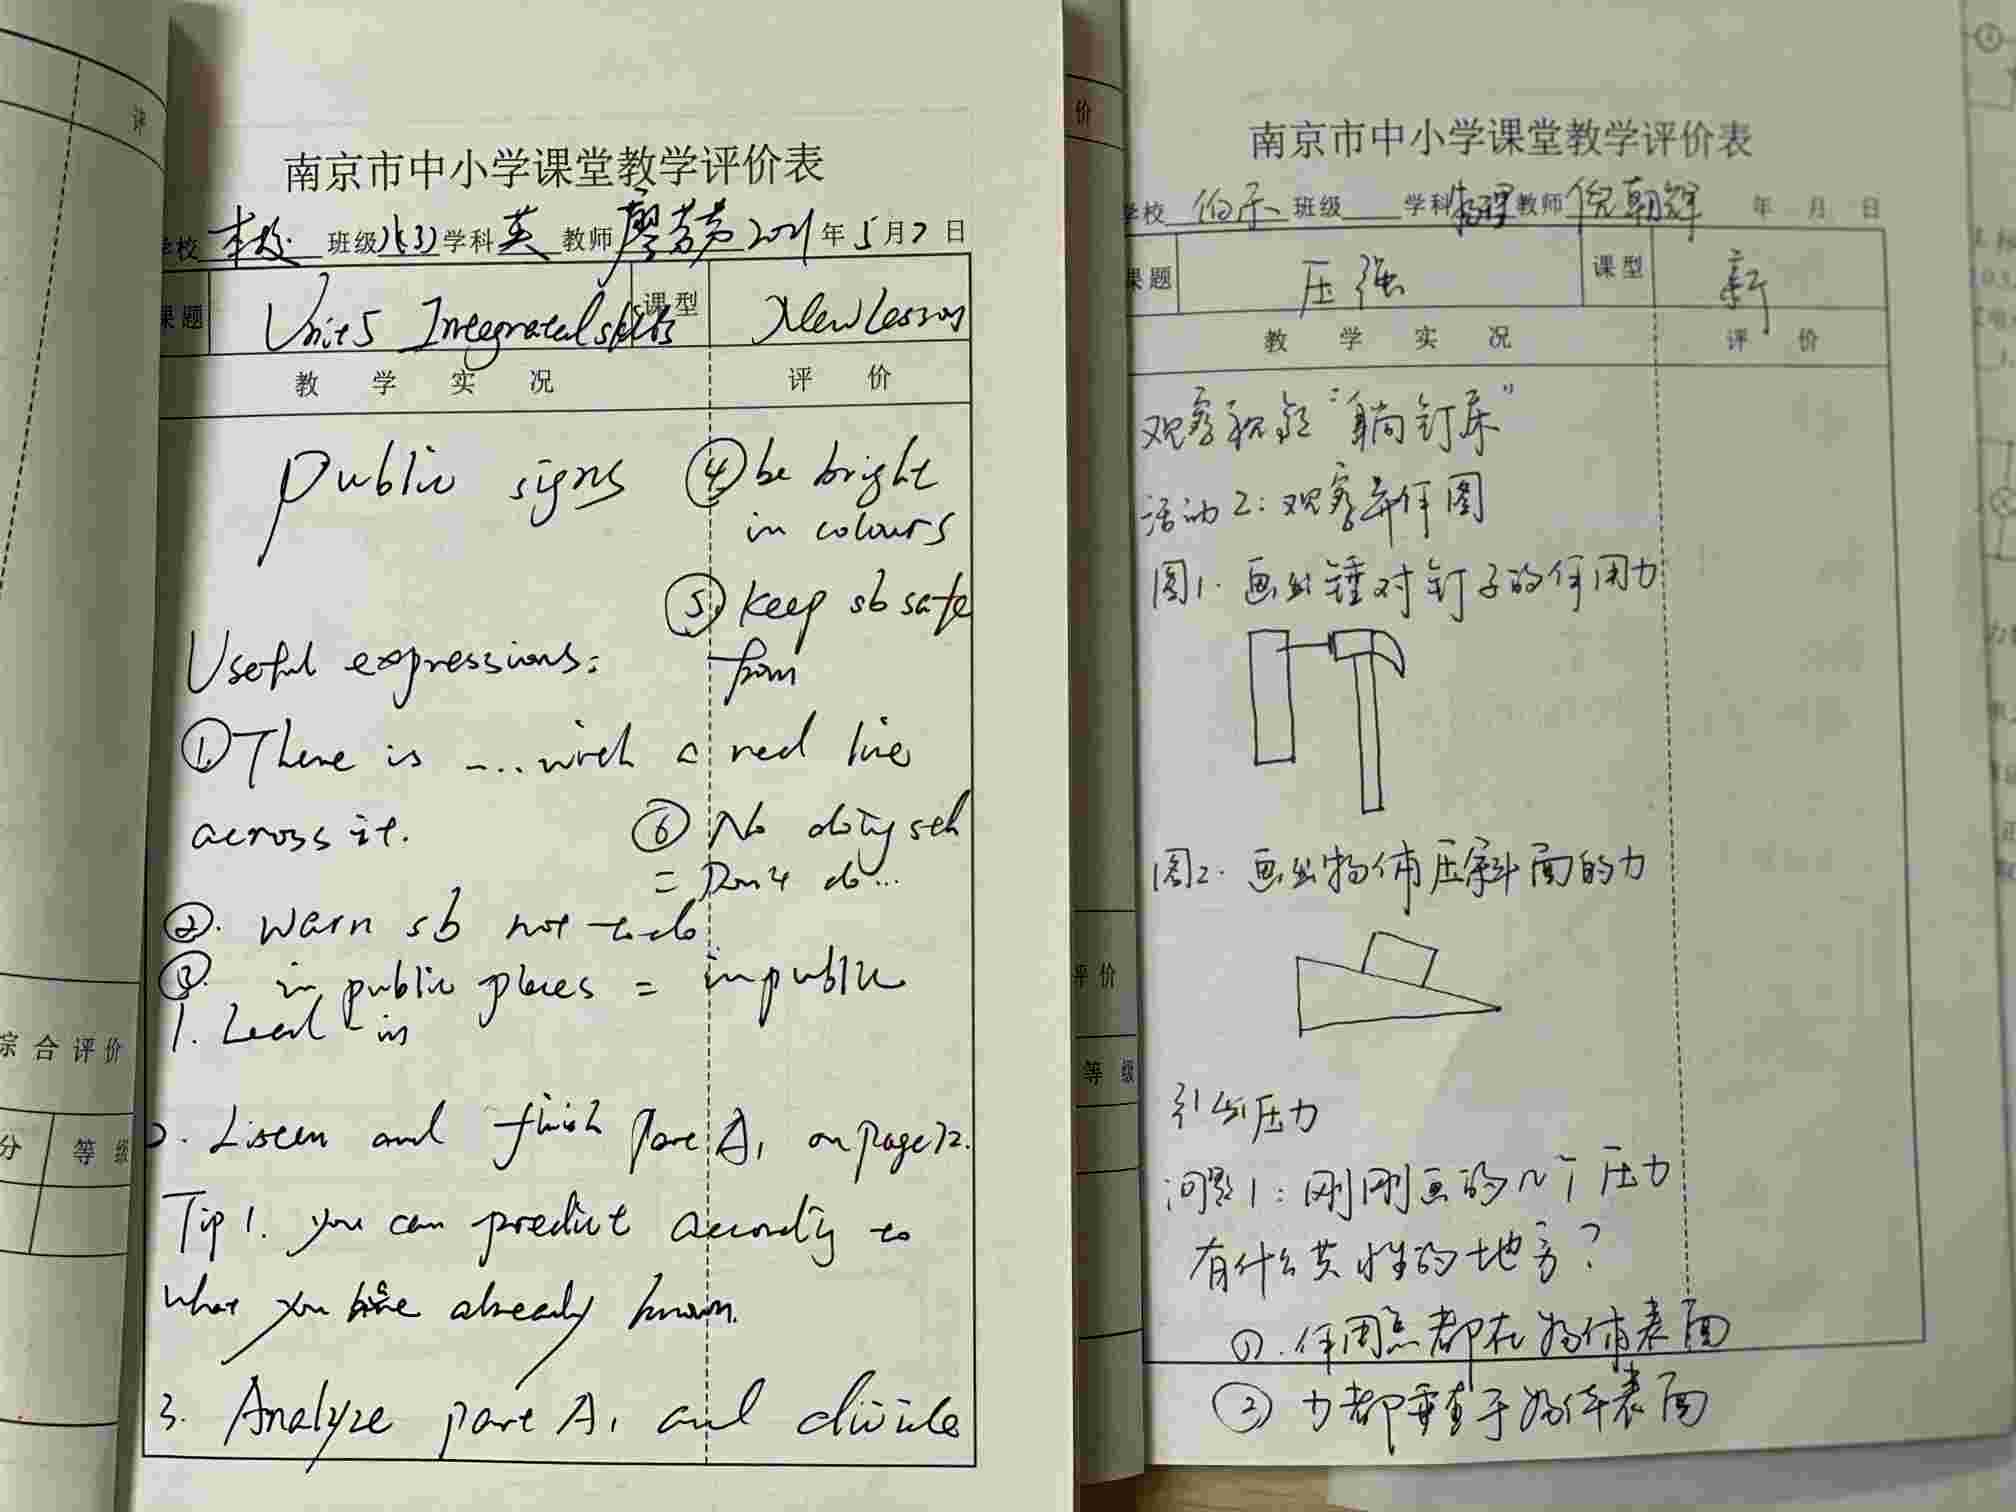 评
综合评价
分 等级
南京市中小学课堂教学评价表
学校 本校 班级 八(3) 学科 英 教师 廖芸芳 2021年5月7日
课题 Unit5 Integrated skills 课型 New lesson
教学实况 评价
Public signs
Useful expressions:
①There is -... with a red line
across it.
②. warn sb not to do
③. in public places = in public
④be bright
in colours
⑤keep sb safe
from
⑥ No doing sth
= Don't do...
1. Lead-in
2. Listen and finish part A1 on page 72.
Tip 1. you can predict according to
what you have already known.
3. Analyze part A1 and divide
价
评价
等级
南京市中小学课堂教学评价表
学校 伯乐 班级 学科 物理 教师 倪朝辉 年 月 日
课题 压强 课型 新
教学实况 评价
观察视频“躺钉床”
活动2:观察并作图
图1. 画出锤对钉子的作用力
图2. 画出物体压斜面的力
引出压力
问题1:刚刚画的几个压力
有什么共性的地方?
①. 作用点都在物体表面
② 力都垂直于物体表面